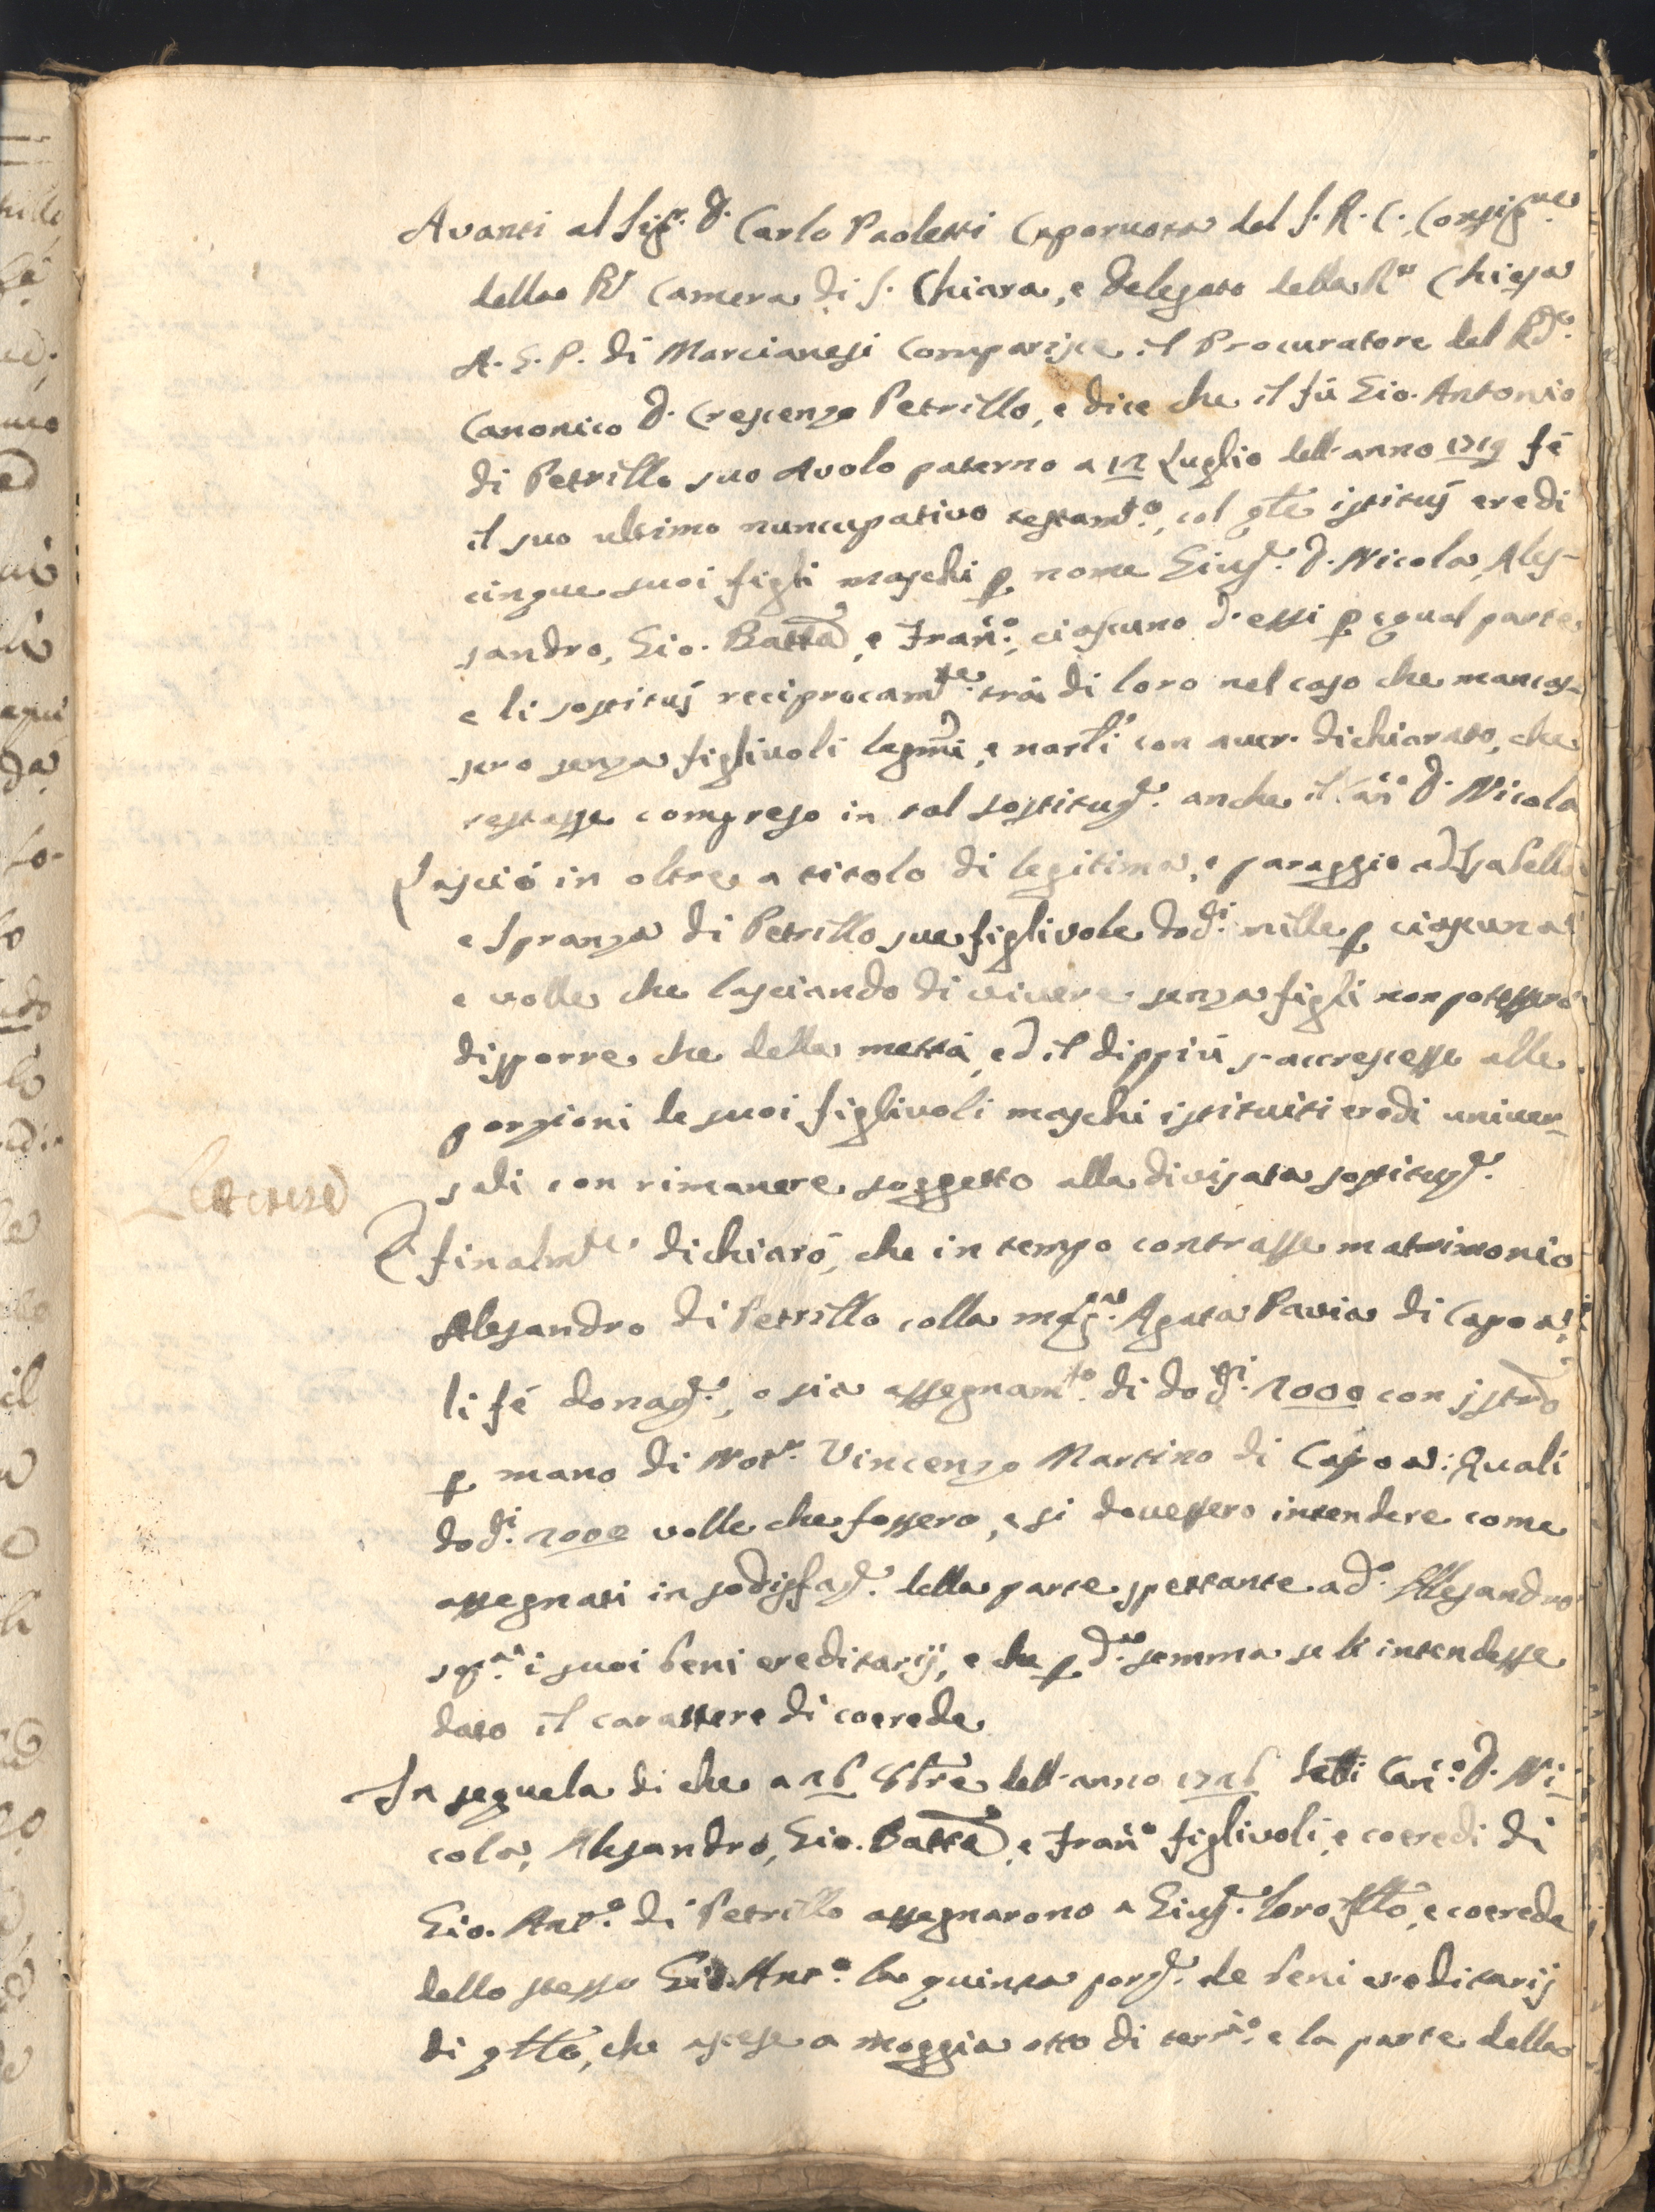 Avanti al Sig.r D. Carlo Paoletti Caporuota del S. R. C., Consig.re
della R.l Camera di S. Chiara, e Delegato della R.l Chiesa
A. G. P. di Marcianesi comparisce il Procuratore del R.do
Canonico D. Crescenzo Petrillo, e dice che il fù Gio. Antonio
di Petrillo suo Avolo paterno a 12 Luglio dell'anno 1719 fé
il suo ultimo nuncupativo testam.to, col qle istituj eredi
cinque suoi figli maschi p nome Giuse. D. Nicola, Ales-
sandro, Gio. Batta, e Fran.co, ciascuno d'essi p egual parte
e li sostituj reciprocam.te trà di loro nel caso che mancas-
sero senza figlivoli legmi, e narli con aver dichiarato, che
restasse compreso in tal sostituze. anche il Can.co D. Nicola
Lasciò in oltre a titolo di legitima, e paraggio ad Isabella
e Spranza di Petrillo sue figlivole dodi. mille p ciascuna
e volle che lasciando di vivere senza figli non potessero
disporre che della mettà, ed il dippiù s'accrescesse alle
porzioni de suoi figlivoli maschi istituiti eredi univer-
sali con rimanere soggetto alla divisata sostituze.
E finalm.te dichiarò, che in tempo contrasse matrimonio
Alesandro di Petrillo colla mag.ca Agata Pavia di Capoa,
li fé donaze., o sia assegnam.to di dodi. 1000 con istro
p mano di Not.r Vincenzo Martino di Capoa: Quali
dodi. 1000 volle che fossero, e si dovessero intendere come
assegnati in sodisfaze. della parte spettante a d.o Alesandro
sop.a i suoi beni ereditarij, e che p d.a somma se li intendesse
dato il carattere di coerede
In seguela di che a 26 8bre dell'anno 1726 detti Can.co D. Ni-
cola, Alesandro, Gio. Batta, e Fran.co figlivoli, e coeredi di
Gio. Ant.o di Petrillo assegnarono a Giuse. loro fllo, e coerede
dello stesso Gio. Ant.o la quinta porze. de beni ereditarij
di qllo, che ascese a moggia otto di terr.o e la parte della